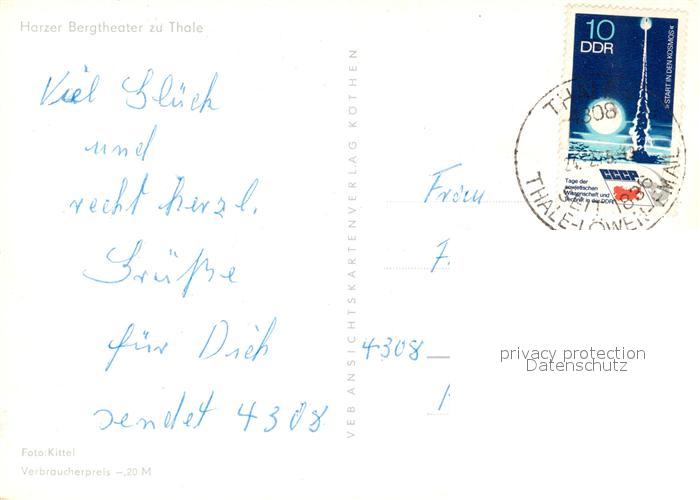 Harzer Bergtheater zu Thale
Viel Glück
und
recht herzl.
Grüße
für Dich
sendet 4308
Foto: Kittel
Verbraucherpreis –,20 M
VEB ANSICHTSKARTENVERLAG KÖTHEN
10
DDR
»START IN DEN KOSMOS«
Tage der
sowjetischen
Wissenschaft und
Technik in der DDR
4308
SEIT 1836
THALE-LÖWEN-EMAIL
4308
privacy protection
Datenschutz